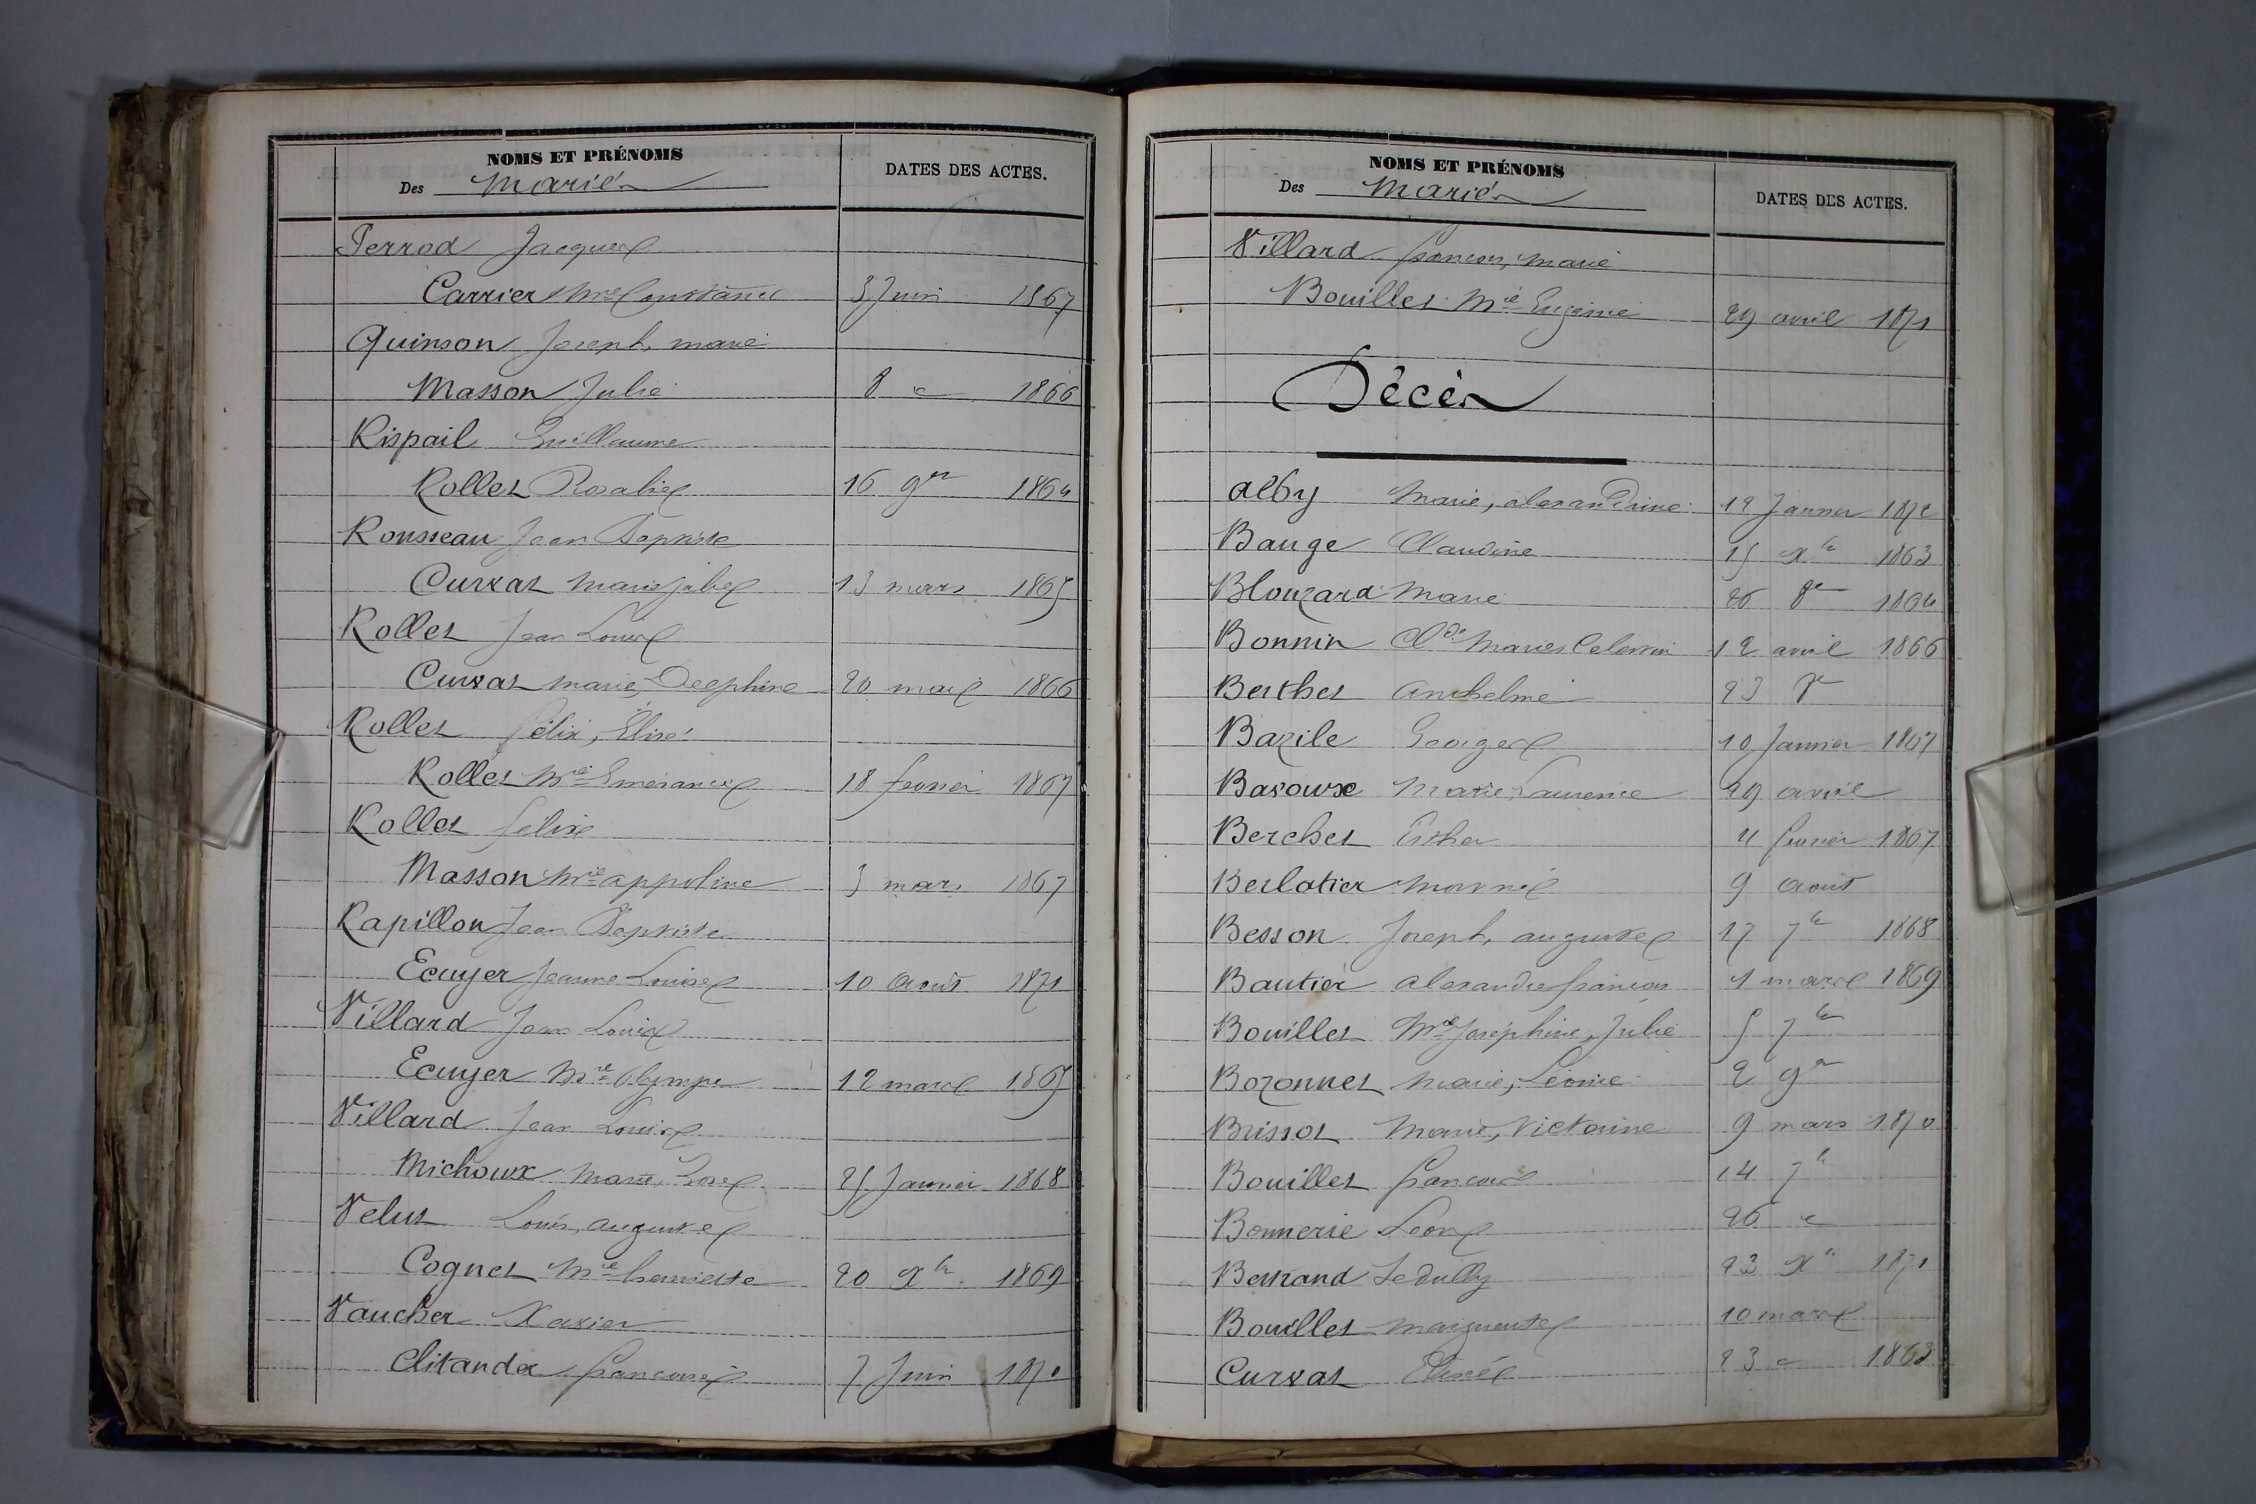 NOMS ET PRÉNOMS
Des Mariés
DATES DES ACTES.
Perrod Jacques
Carrier Mie Constance 3 Juin 1867
Quinson Joseph, marie
Masson Julie 8 " 1866
Rispail Guillaume
Rollet Rosalie 16 9re 1864
Rousseau Jean Baptiste
Curvat Marie Julie 13 mars 1865
Rollet Jean Louis
Curvat Marie, Delphine 20 mai 1866
Rollet Félix, Elisé
Rollet Mie Emérancie 18 fevrier 1867
Rollet félix
Masson Mie appoline 3 mars 1867
Rapillon Jean Baptiste
Ecuyer Jeanne Louise 10 Août 1871
Villard Jean Louis
Ecuyer Mie Olympe 12 mars 1865
Villard Jean Louis
Michoux Marie, Rose 25 Janvier 1868
Velut Louis, auguste
Cognet Mie henriette 20 Xbre 1869
Vaucher Xavier
Clitandex francoise 7 Juin 1870
NOMS ET PRÉNOMS
Des Mariés
DATES DES ACTES.
Villard francois, marie
Bouillet Mie Eugénie 29 avril 1871
Décès
Alby Marie, alexandrine 12 Janvier 1872
Bauge Claudine 15 Xbre 1863
Blouzard Marie 26 8re 1864
Bonnin Cde Marie Celestin 12 avril 1866
Berthet Anthelme 23 8re
Bazile Georges 10 Janvier 1867
Bavoux Marie, Laurence 29 avril
Berchet Esther 4 fevrier 1867
Berlatier 9 août
Besson Joseph, auguste 17 7bre 1868
Bautier alexandre francois 1 mars 1869
Bouillet Mie Joséphine, Julie 5 7bre
Bozonnet Marie, Léonie 2 9re
Brissot Marie, Victorine 9 mars 1870
Bouillet francois 14 7bre
Bonnerie Léon 26 "
Bertrand 23 Xbre 1871
Bouillet Marguerite 10 mars
Curvat Elisée 23 " 1863